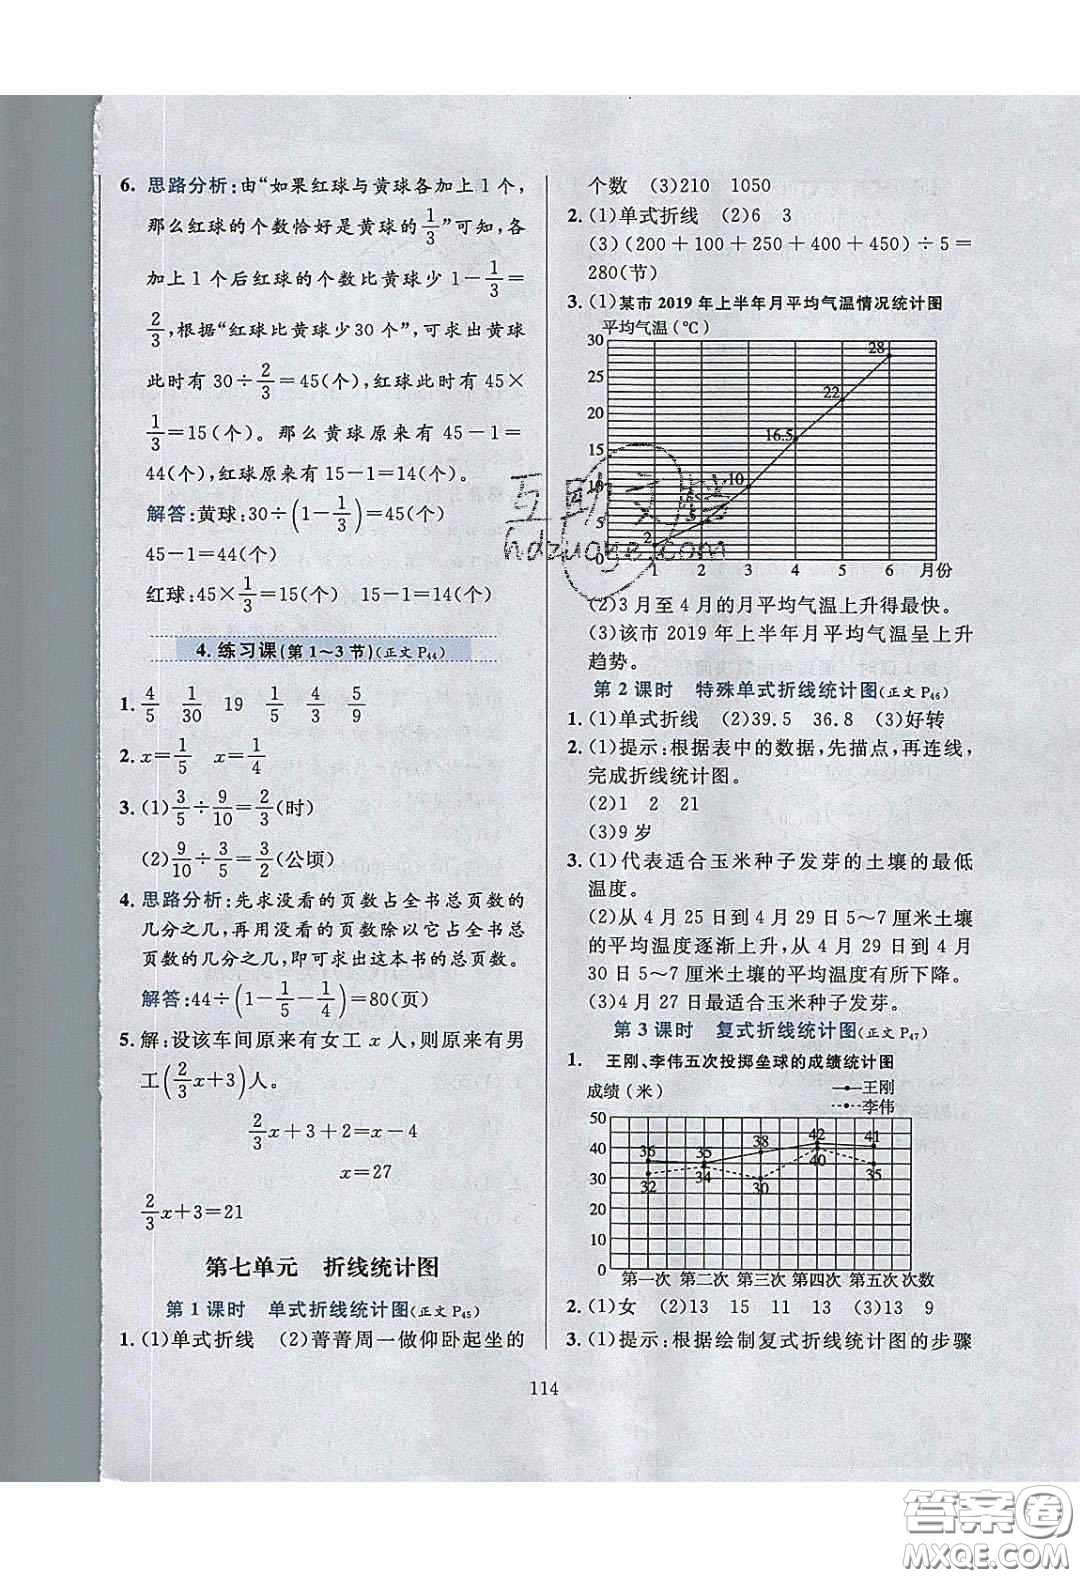 6. 思路分析:由“如果红球与黄球各加上1个,
那么红球的个数恰好是黄球的1/3”可知,各
加上1个后红球的个数比黄球少1－1/3＝
2/3,根据“红球比黄球少30个”,可求出黄球
此时有30÷2/3＝45(个),红球此时有45×
1/3＝15(个)。那么黄球原来有45－1＝
44(个),红球原来有15－1＝14(个)。
解答:黄球:30÷(1－1/3)＝45(个)
45－1＝44(个)
红球:45×1/3＝15(个) 15－1＝14(个)
4. 练习课(第1～3节)(正文P44)
1. 4/5 1/30 19 1/5 4/3 5/9
2. x＝1/5 x＝1/4
3. (1)3/5÷9/10＝2/3(时)
(2)9/10÷3/5＝3/2(公顷)
4. 思路分析:先求没看的页数占全书总页数的
几分之几,再用没看的页数除以它占全书总
页数的几分之几,即可求出这本书的总页数。
解答:44÷(1－1/5－1/4)＝80(页)
5. 解:设该车间原来有女工x人,则原来有男
工(2/3x＋3)人。
2/3x＋3＋2＝x－4
x＝27
2/3x＋3＝21
第七单元 折线统计图
第1课时 单式折线统计图(正文P45)
1. (1)单式折线 (2)菁菁周一做仰卧起坐的
个数 (3)210 1050
2. (1)单式折线 (2)6 3
(3)(200＋100＋250＋400＋450)÷5＝
280(节)
3. (1)某市2019年上半年月平均气温情况统计图
平均气温(℃)
30
28
25
22
20
16.5
15
10
10
5
2
0
1 2 3 4 5 6 月份
(2)3月至4月的月平均气温上升得最快。
(3)该市2019年上半年月平均气温呈上升
趋势。
第2课时 特殊单式折线统计图(正文P46)
1. (1)单式折线 (2)39.5 36.8 (3)好转
2. (1)提示:根据表中的数据,先描点,再连线,
完成折线统计图。
(2)1 2 21
(3)9岁
3. (1)代表适合玉米种子发芽的土壤的最低
温度。
(2)从4月25日到4月29日5～7厘米土壤
的平均温度逐渐上升,从4月29日到4月
30日5～7厘米土壤的平均温度有所下降。
(3)4月27日最适合玉米种子发芽。
第3课时 复式折线统计图(正文P47)
1. 王刚、李伟五次投掷垒球的成绩统计图
成绩(米)
王刚
李伟
50
40
30
20
10
0
36 35 38 42 41
32 34 30 40 35
第一次 第二次 第三次 第四次 第五次 次数
2. (1)女 (2)13 15 11 13 (3)13 9
3. (1)提示:根据绘制复式折线统计图的步骤
114
互助文档
hdzuoye.com
答案卷
MXQE.COM